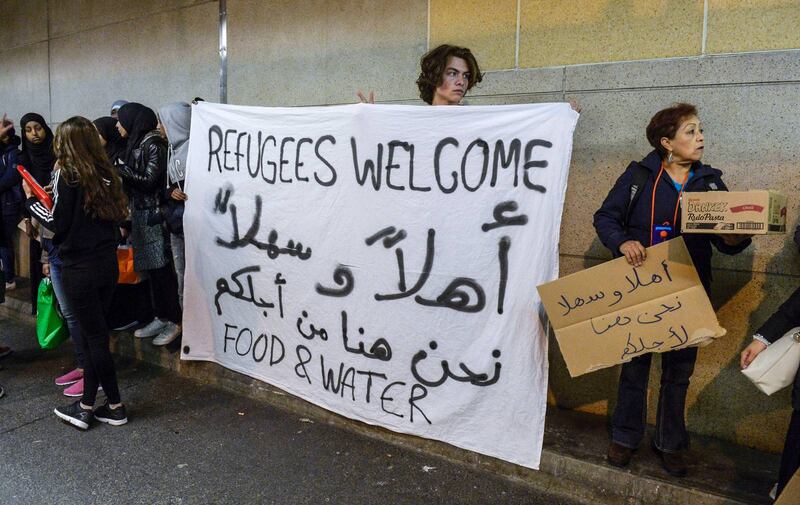 REFUGEES WELCOME
أهلاً و سهلاً
نحن هنا من أجلكم
FOOD & WATER
DANKEK
RuloPasta
أهلا وسهلا
نحن هنا
لأجلكم